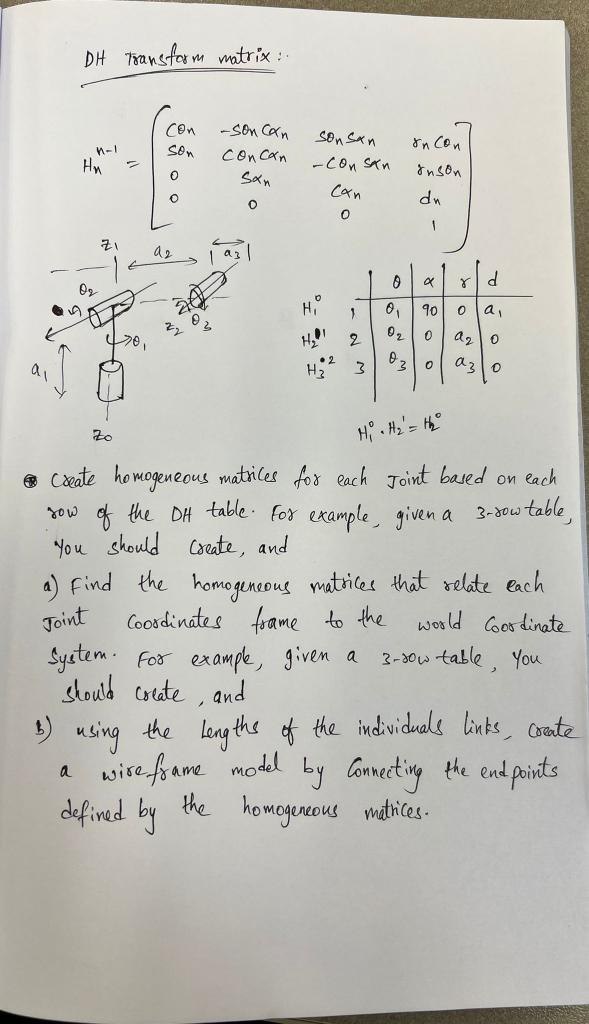 DH Transform matrix :-
Hn^n-1 =
Cθn -SθnCαn SθnSαn rnCθn
Sθn CθnCαn -CθnSαn rnSθn
0 Sαn Cαn dn
0 0 0 1
z1 a2 a3
θ2
z2 θ3
θ1
a1
z0
θ α r d
H1^0 1 θ1 90 0 a1
H2^1 2 θ2 0 a2 0
H3^2 3 θ3 0 a3 0
H1^0 . H2^1 = H2^0
Create homogeneous matrices for each Joint based on each
row of the DH table. For example, given a 3-row table,
You should Create, and
a) Find the homogeneous matrices that relate each
Joint Coordinates frame to the world Coordinate
System. For example, given a 3-row table, You
should Create, and
b) using the Lengths of the individuals links, Create
a wire frame model by Connecting the endpoints
defined by the homogeneous matrices.